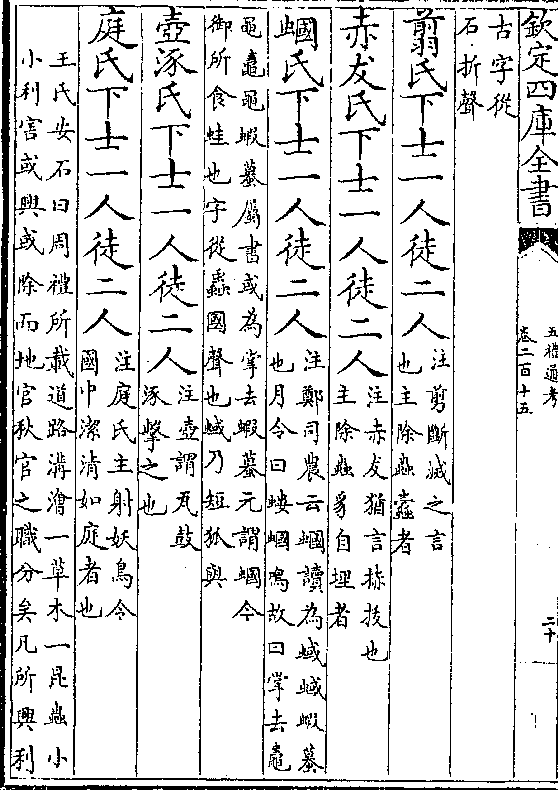 欽定四庫全書
五禮通考
卷二百十五
二十
古字從
石折聲
翦氏下士一人徒二人
注翦斷滅之言
也主除蟲蠹者
赤犮氏下士一人徒二人
注赤犮猶言捇拔也
主除蟲豸自埋者
蟈氏下士一人徒二人
注鄭司農云蟈讀為蜮蜮蝦蟇
也月令曰螻蟈鳴故曰掌去鼃
黽鼃黽蝦蟇屬書或為掌去蝦蟇元謂蟈今
御所食蛙也字從蟲國聲也蜮乃短狐與
壺涿氏下士一人徒二人
注壺謂瓦鼓
涿擊之也
庭氏下士一人徒二人
注庭氏主射妖鳥令
國中潔清如庭者也
王氏安石曰周禮所載道路溝澮一草木一昆蟲小
小利害或興或除而地官秋官之職分矣凡所興利